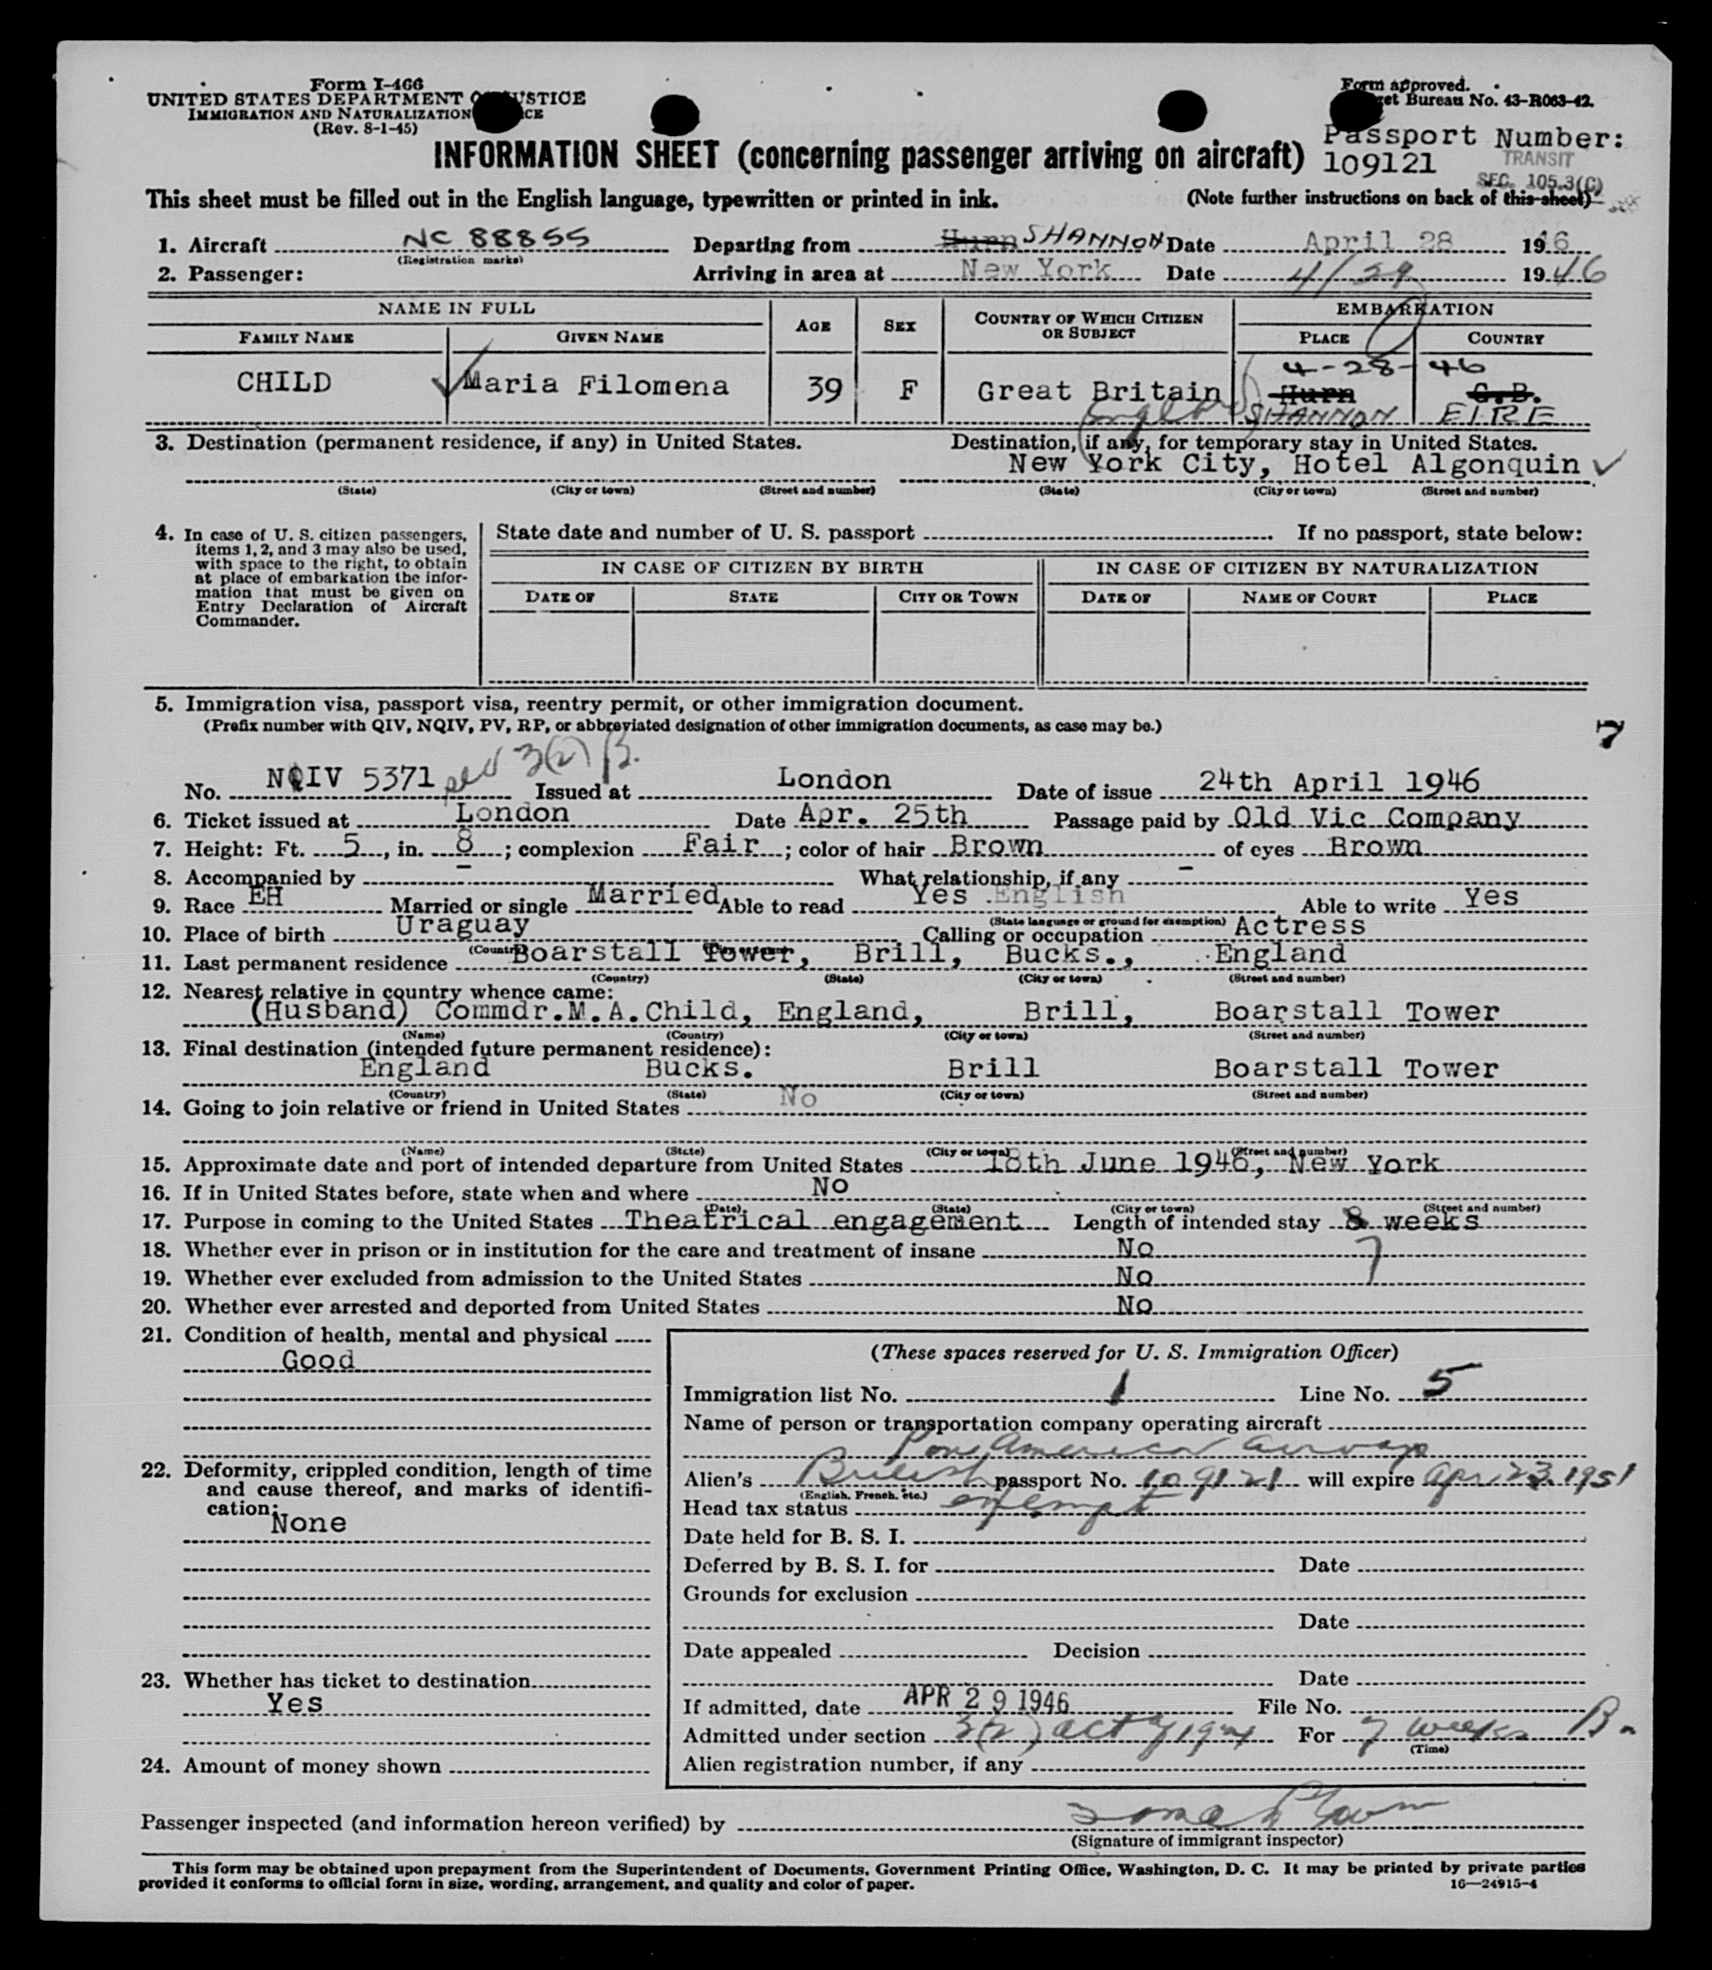 Form I-466
UNITED STATES DEPARTMENT OF JUSTICE
IMMIGRATION AND NATURALIZATION
(Rev. 8-1-45)
Form approved.
Budget Bureau No. 43-R063-42.
Passport Number:
109121
TRANSIT
SEC. 105.3(C)
INFORMATION SHEET (concerning passenger arriving on aircraft)
This sheet must be filled out in the English language, typewritten or printed in ink. (Note further instructions on back of this sheet)
1. Aircraft NC 88855 Departing from Hurn SHANNON Date April 28 1946
(Registration marks)
2. Passenger: Arriving in area at New York Date 4/29 1946
NAME IN FULL AGE SEX COUNTRY OF WHICH CITIZEN OR SUBJECT EMBARKATION
FAMILY NAME GIVEN NAME PLACE COUNTRY
4-28-46
CHILD Maria Filomena 39 F Great Britain Hurn G.B.
England SHANNON EIRE
3. Destination (permanent residence, if any) in United States. Destination, if any, for temporary stay in United States.
New York City, Hotel Algonquin
(State) (City or town) (Street and number) (State) (City or town) (Street and number)
4. In case of U. S. citizen passengers, items 1, 2, and 3 may also be used, with space to the right, to obtain at place of embarkation the information that must be given on Entry Declaration of Aircraft Commander.
State date and number of U. S. passport If no passport, state below:
IN CASE OF CITIZEN BY BIRTH IN CASE OF CITIZEN BY NATURALIZATION
DATE OF STATE CITY OR TOWN DATE OF NAME OF COURT PLACE
5. Immigration visa, passport visa, reentry permit, or other immigration document.
(Prefix number with QIV, NQIV, PV, RP, or abbreviated designation of other immigration documents, as case may be.)
7
3(2) B.
No. NQIV 5371 Issued at London Date of issue 24th April 1946
6. Ticket issued at London Date Apr. 25th Passage paid by Old Vic Company
7. Height: Ft. 5, in. 8; complexion Fair; color of hair Brown of eyes Brown
8. Accompanied by - What relationship, if any -
9. Race EH Married or single Married Able to read Yes English Able to write Yes
(State language or ground for exemption)
10. Place of birth Uraguay Calling or occupation Actress
(Country) (City or town)
11. Last permanent residence Boarstall Tower, Brill, Bucks., England
(Country) (State) (City or town) (Street and number)
12. Nearest relative in country whence came:
(Husband) Commdr.M.A.Child, England, Brill, Boarstall Tower
(Name) (Country) (City or town) (Street and number)
13. Final destination (intended future permanent residence):
England Bucks. Brill Boarstall Tower
(Country) (State) (City or town) (Street and number)
14. Going to join relative or friend in United States No
(Name) (State) (City or town) (Street and number)
15. Approximate date and port of intended departure from United States 18th June 1946, New York
16. If in United States before, state when and where No
(Date) (State) (City or town) (Street and number)
17. Purpose in coming to the United States Theatrical engagement Length of intended stay 8 weeks
7
18. Whether ever in prison or in institution for the care and treatment of insane No
19. Whether ever excluded from admission to the United States No
20. Whether ever arrested and deported from United States No
21. Condition of health, mental and physical
Good
22. Deformity, crippled condition, length of time and cause thereof, and marks of identification:
None
23. Whether has ticket to destination
Yes
24. Amount of money shown
(These spaces reserved for U. S. Immigration Officer)
Immigration list No. 1 Line No. 5
Name of person or transportation company operating aircraft
Pan American Airways
Alien's British passport No. 109121 will expire Apr. 23. 1951
(English, French, etc.)
Head tax status exempt
Date held for B. S. I.
Deferred by B. S. I. for Date
Grounds for exclusion
Date
Date appealed Decision
Date
If admitted, date APR 29 1946 File No.
Admitted under section 3(2) act of 1924 For 7 weeks B.
(Time)
Alien registration number, if any
Passenger inspected (and information hereon verified) by
(Signature of immigrant inspector)
This form may be obtained upon prepayment from the Superintendent of Documents, Government Printing Office, Washington, D. C. It may be printed by private parties
provided it conforms to official form in size, wording, arrangement, and quality and color of paper. 16—24915-4